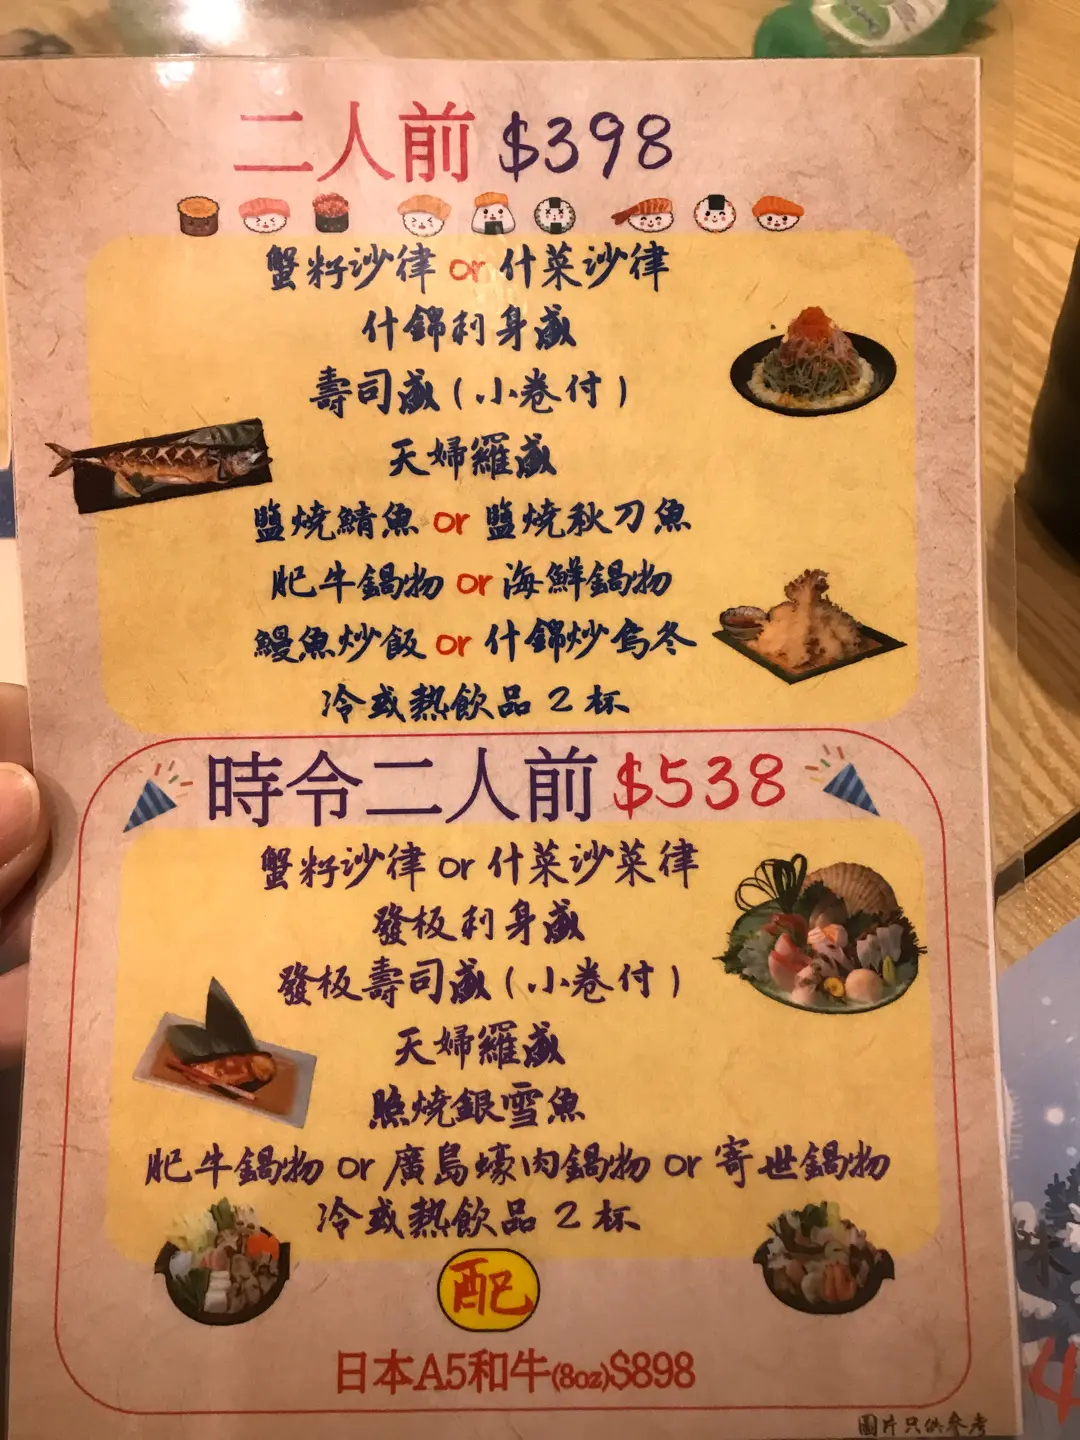 二人前 $398
蟹籽沙律 or 什菜沙律
什錦刺身盛
壽司盛（小卷付）
天婦羅盛
鹽燒鯖魚 or 鹽燒秋刀魚
肥牛鍋物 or 海鮮鍋物
鰻魚炒飯 or 什錦炒烏冬
冷或熱飲品 2 杯
時令二人前 $538
蟹籽沙律 or 什菜沙菜律
發板刺身盛
發板壽司盛（小卷付）
天婦羅盛
照燒銀雪魚
肥牛鍋物 or 廣島蠔肉鍋物 or 寄世鍋物
冷或熱飲品 2 杯
配
日本A5和牛(8oz)$898
圖片只供參考
4